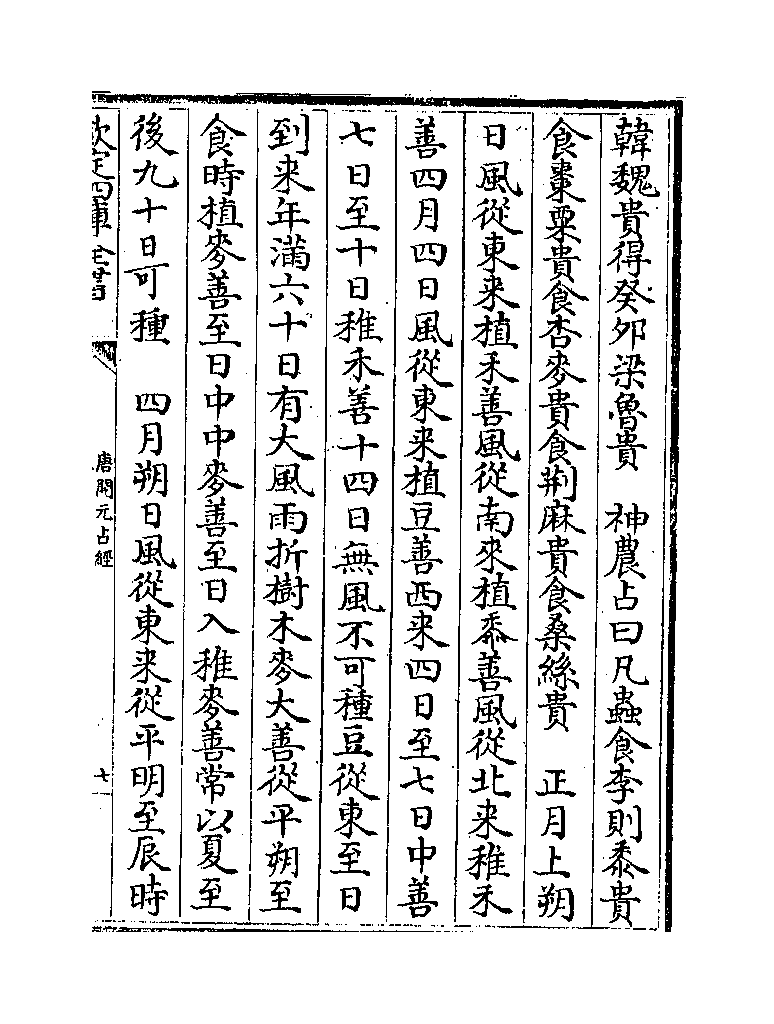 韓魏貴得癸夘梁魯貴　神農占曰凡蟲食李則黍貴
食棗粟貴食杏麥貴食荆麻貴食桑絲貴　正月上朔
日風從東来植禾善風從南來植黍善風從北来稚禾
善四月四日風從東来植豆善西来四日至七日中善
七日至十日稚禾善十四日無風不可種豆從東至日
到来年滿六十日有大風雨折樹木麥大善從平朔至
食時植麥善至日中中麥善至日入稚麥善常以夏至
後九十日可種　四月朔日風從東来從平明至辰時
欽定四庫全書
唐開元占經
七